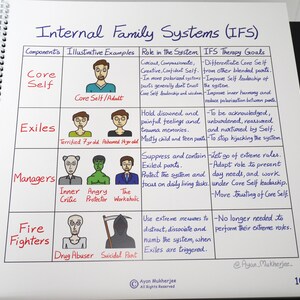 Internal Family Systems (IFS)
Components
Illustrative Examples
Role in the System
IFS Therapy Goals
Core
Self
Core Self/Adult
Calm,
Compassionate,
Creative, Confident Self.
In more polarized systems
parts generally don't trust
Core Self leadership and wisdom
- Differentiate Core Self
from other blended parts.
- Improve Self leadership of
the system.
- Improve inner harmony and
reduce polarization between parts.
Exiles
Terrified 7 yr-old
Ashamed 14 yr-old
Hold disowned and
painful feelings and
trauma memories.
Mostly child and teen parts
- To be acknowledged,
unburdened, reassured
and nurtured by Self.
- To stop hijacking the
system.
Managers
Inner
Critic
Angry
Protector
The
Workaholic
Suppress and contain
Exiled parts.
Protect the system and
focus on daily living tasks.
- Let go of extreme roles.
- Adapt role to present
day needs, and work
under Core Self leadership.
- More trusting of Core Self
Fire
Fighters
Drug Abuser
Suicidal Part
Use extreme measures to
distract, dissociate and
numb the system, when
Exiles are triggered.
- No longer needed to
perform their extreme
roles.
@Ayan_Mukherjee_
© Ayan Mukherjee
All Rights Reserved